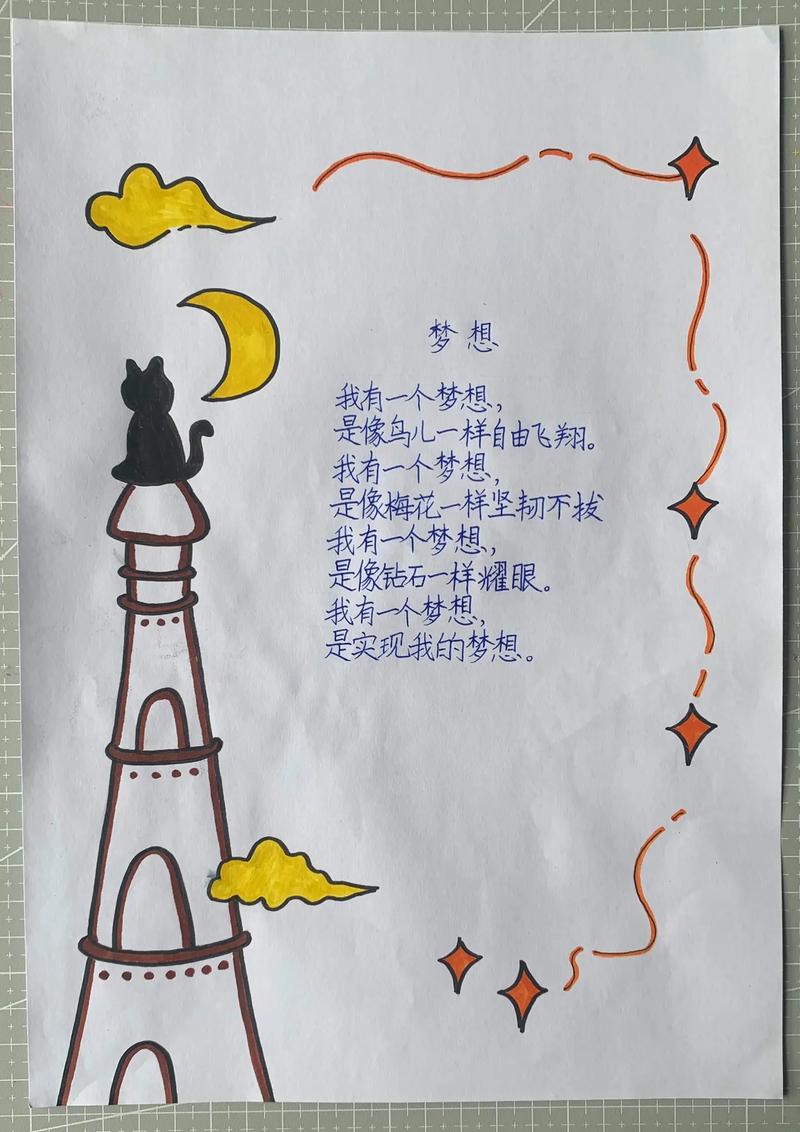 梦想
我有一个梦想，
是像鸟儿一样自由飞翔。
我有一个梦想，
是像梅花一样坚韧不拔
我有一个梦想，
是像钻石一样耀眼。
我有一个梦想，
是实现我的梦想。